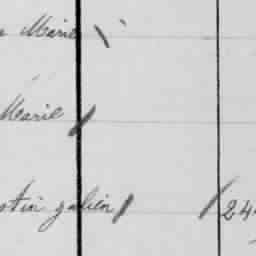 Marie
Marie
stin galien 24